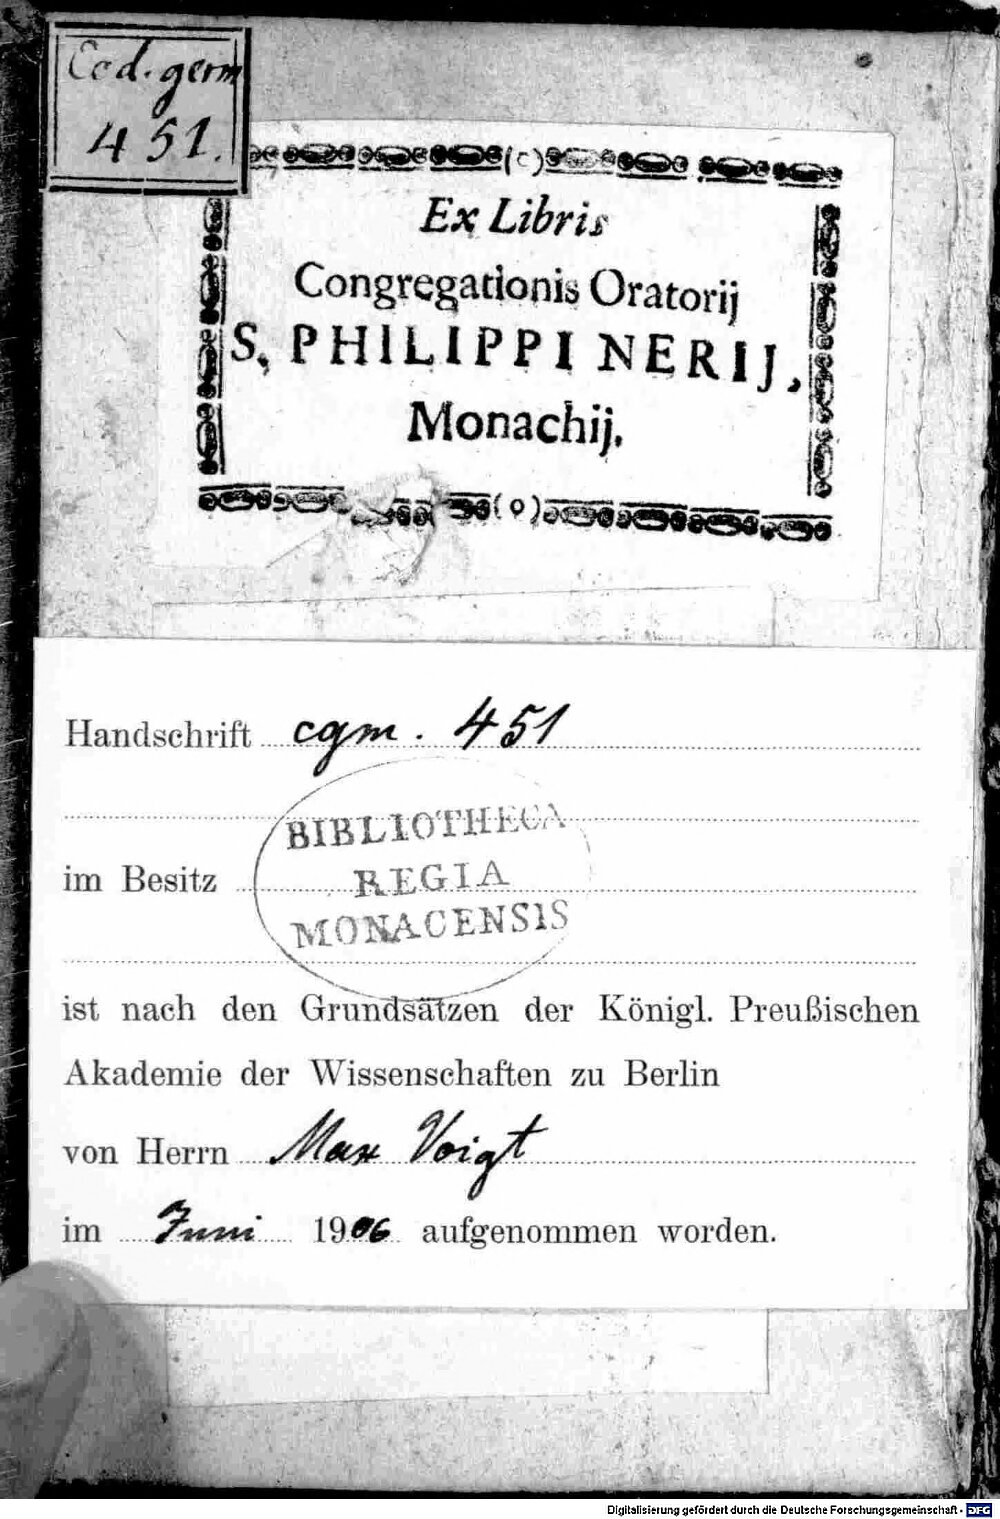 Cod. germ
451.
(c)
Ex Libris
Congregationis Oratorij
S, PHILIPPI NERIJ,
Monachij.
(o)
Handschrift cgm. 451
BIBLIOTHECA
im Besitz
REGIA
MONACENSIS
ist nach den Grundsätzen der Königl. Preußischen
Akademie der Wissenschaften zu Berlin
von Herrn Max Voigt
im Juni 1906 aufgenommen worden.
Digitalisierung gefördert durch die Deutsche Forschungsgemeinschaft - DFG